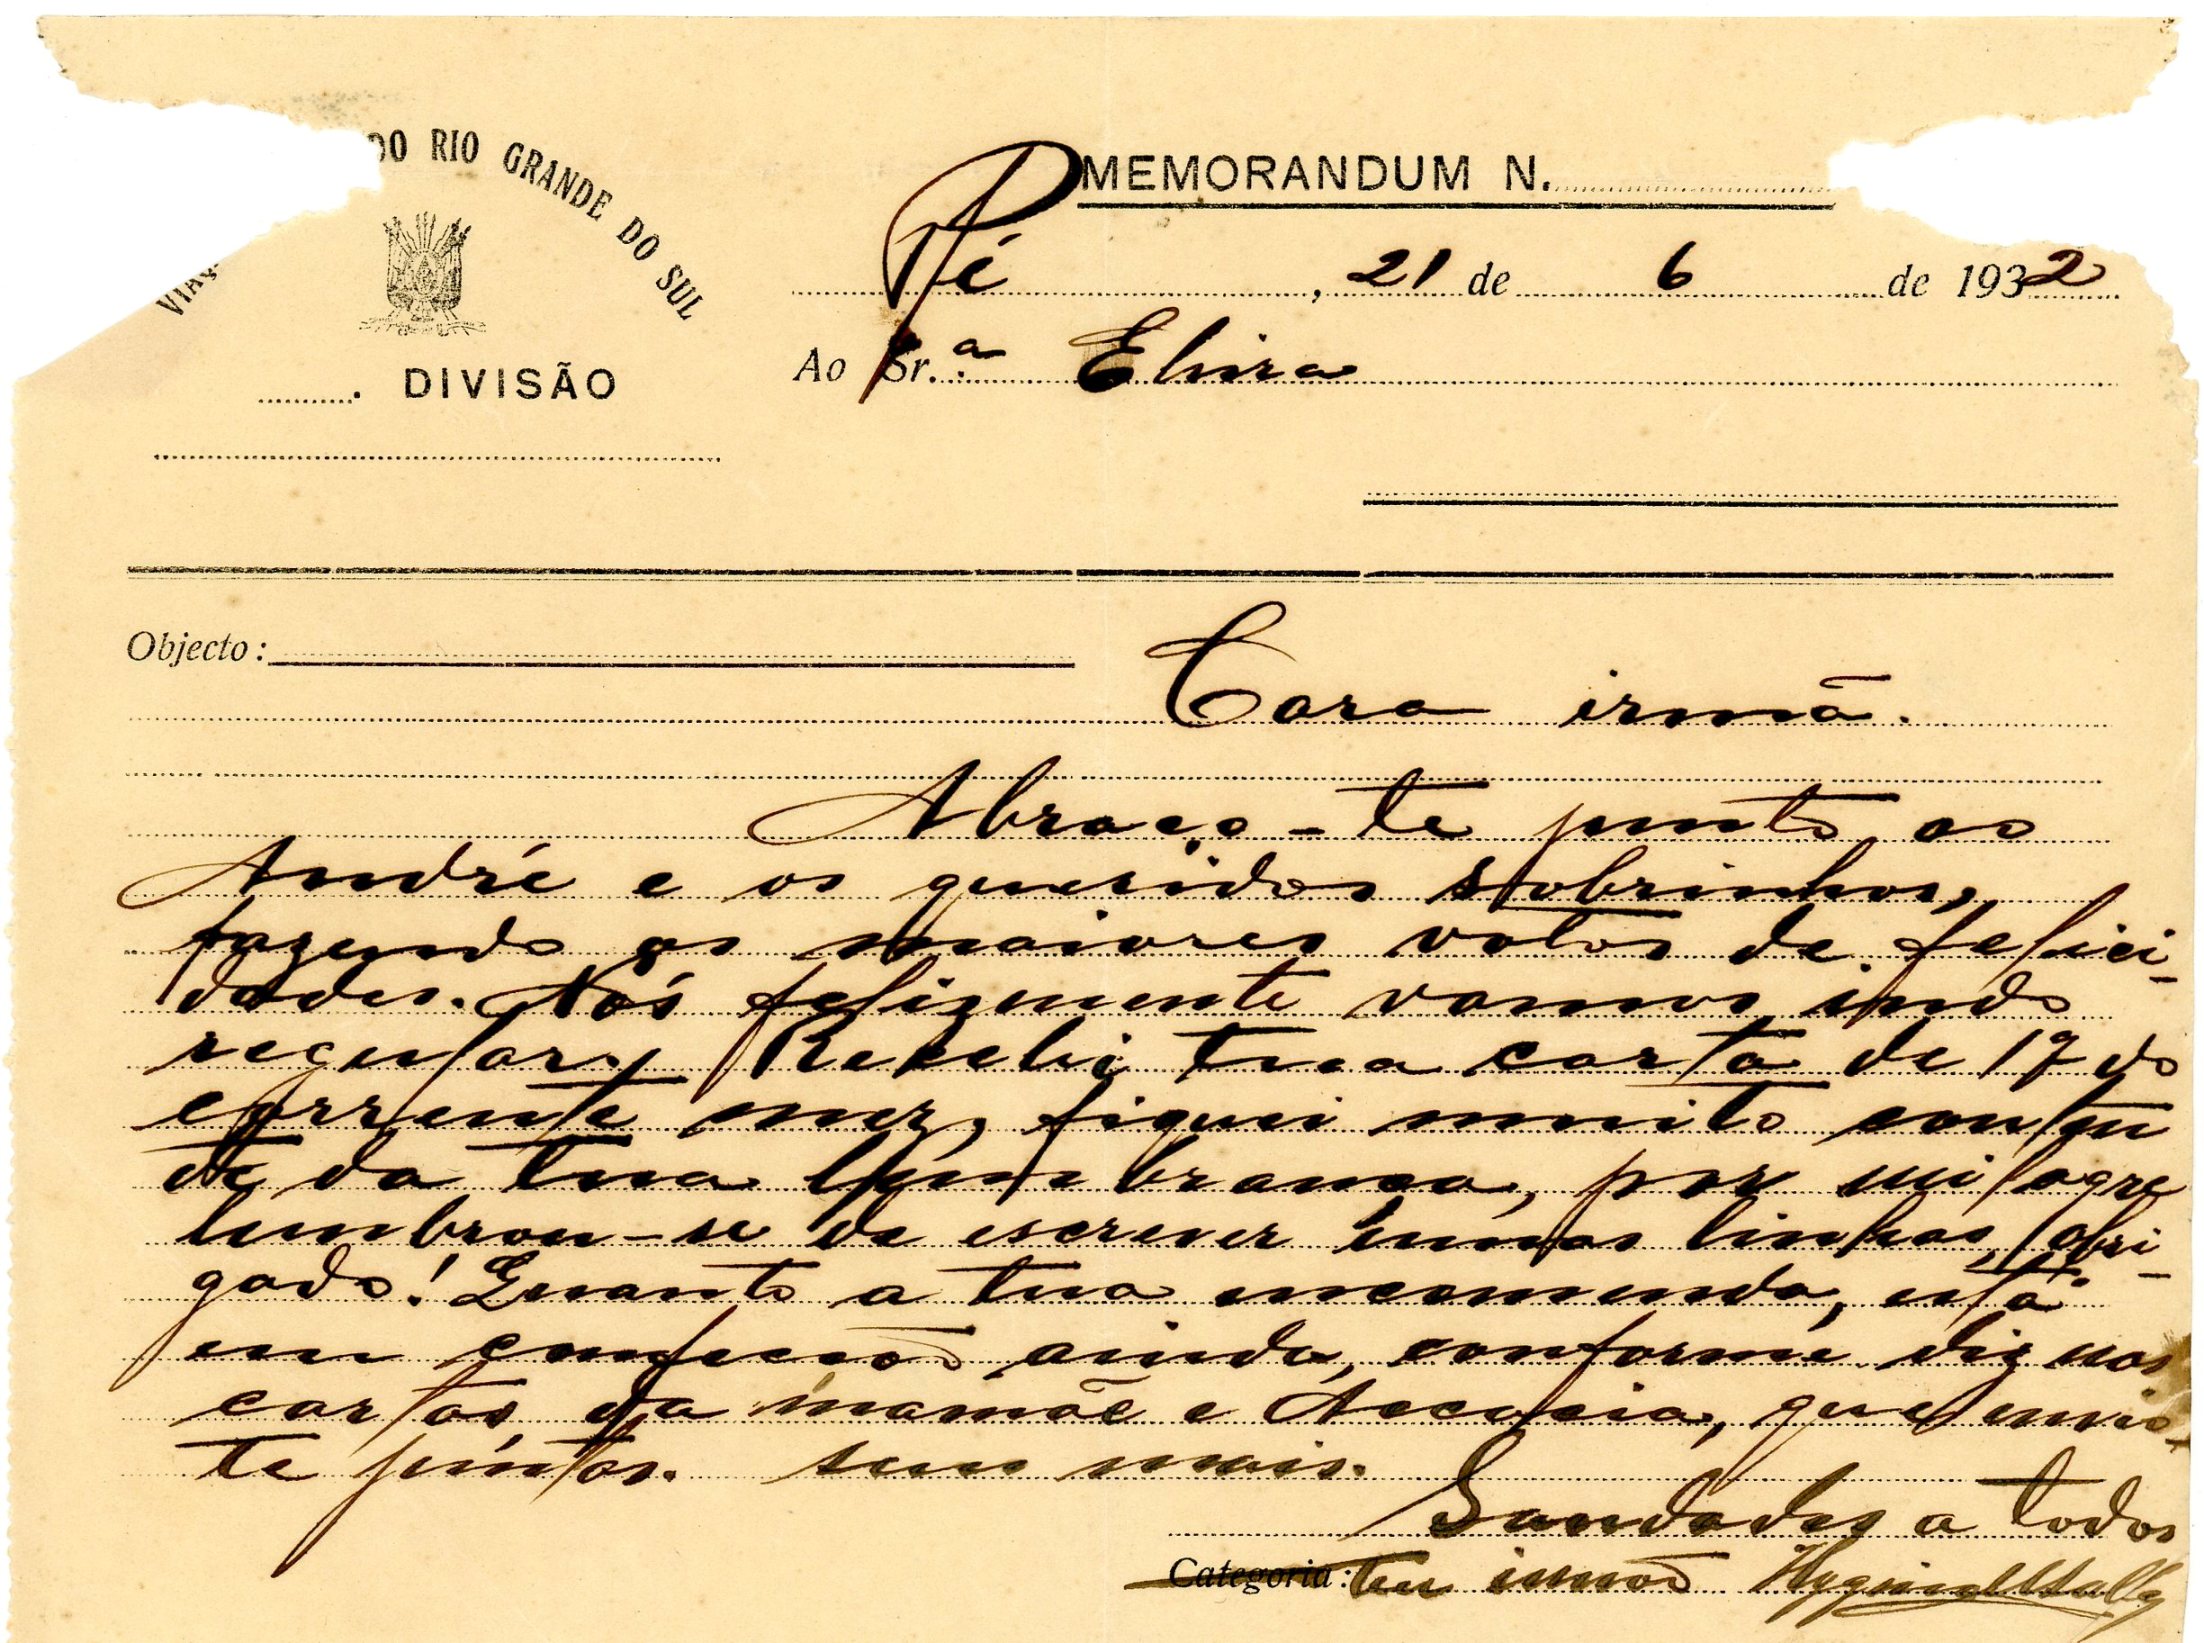 DO RIO GRANDE DO SUL
MEMORANDUM N.
Pé, 21 de 6 de 1932
Ao Sr.ª Elvira
. DIVISÃO
Objecto:
Cara irmã.
Abraço-te junto ao
André e os queridos sobrinhos,
fazendo os maiores votos de felici-
dades. Nós felizmente vamos indo
regular. Recebi tua carta de 17 do
corrente mez, fiquei muito conten
te da tua lembrança, por milagre
lembrou-se de escrever umas linhas, obri-
gado! Quanto a tua encomenda, está
em confecção ainda, conforme diz nas
cartas da mamãe e Accacia, que envio
te juntos. Sem mais.
Saudades a todos
Categoria: teu irmão